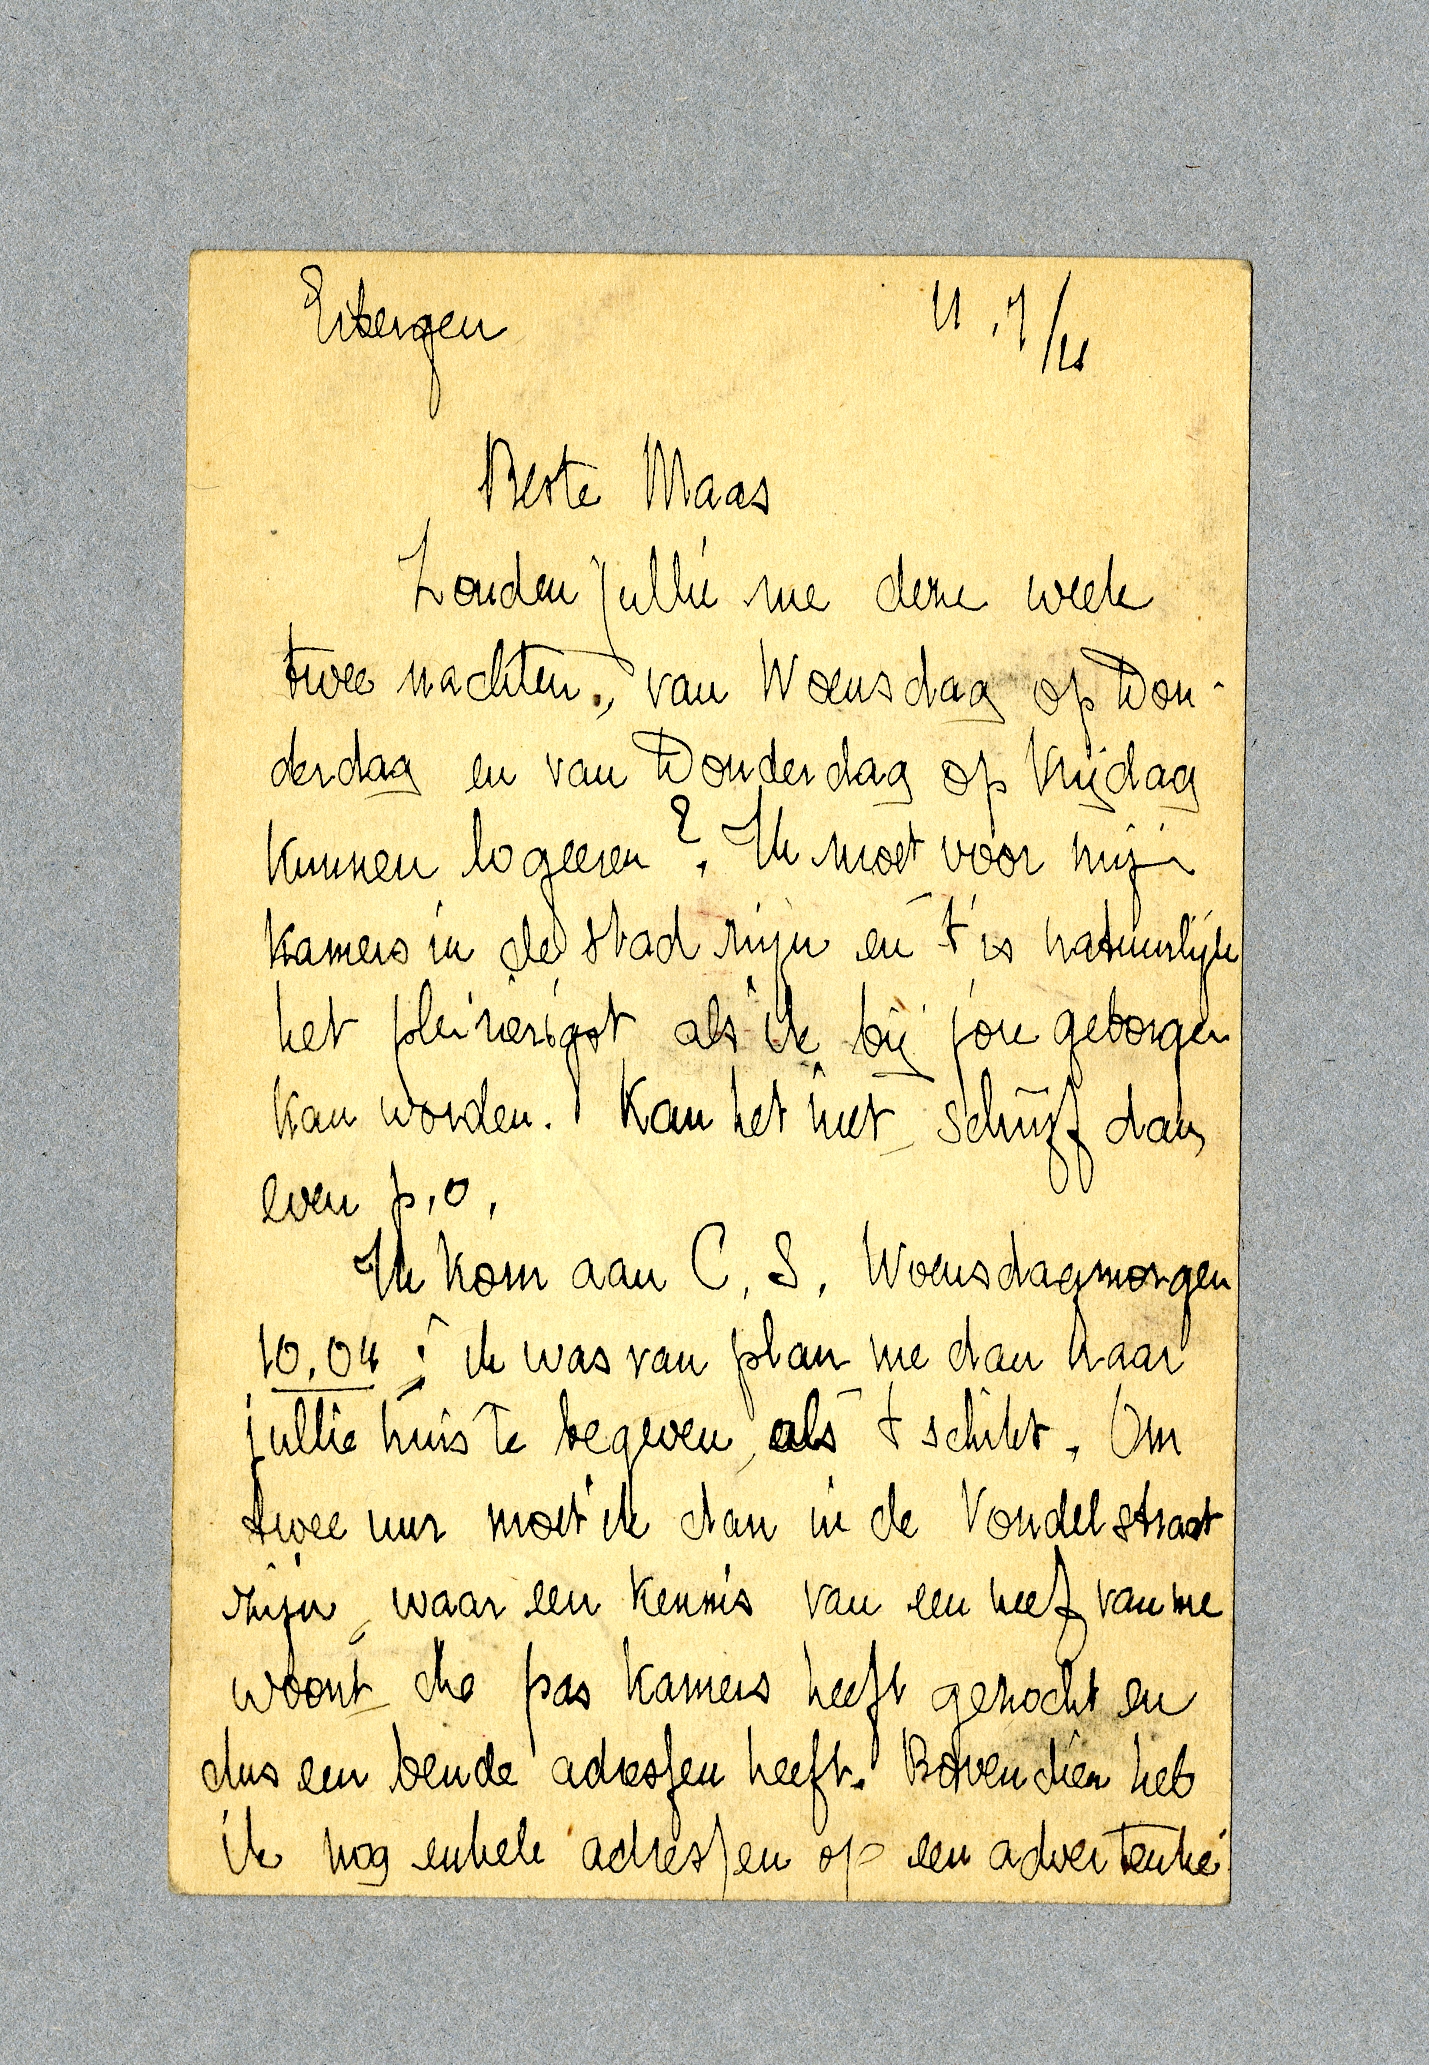 Eibergen
Beste Maas
Zouden jullie me deze week
twee nachten, van Woensdag op Don-
derdag en van Donderdag op Vrijdag
kunnen logeeren? Ik moet voor mijn
kamers in de stad zijn en 't is natuurlijk
het pleizierigst als ik bij jou geborgen
kan worden. Kan het niet schrijf dan
even p.o.
Ik kom aan C.S. Woensdagmorgen
10.04; ik was van plan me dan naar
jullie huis te begeven, als 't schikt. Om
twee uur moet ik dan in de Vondelstraat
zijn, waar een kennis van een neef van me
woont die pas kamers heeft gezocht en
dus een bende adressen heeft. Bovendien heb
ik nog enkele adressen op een advertentie